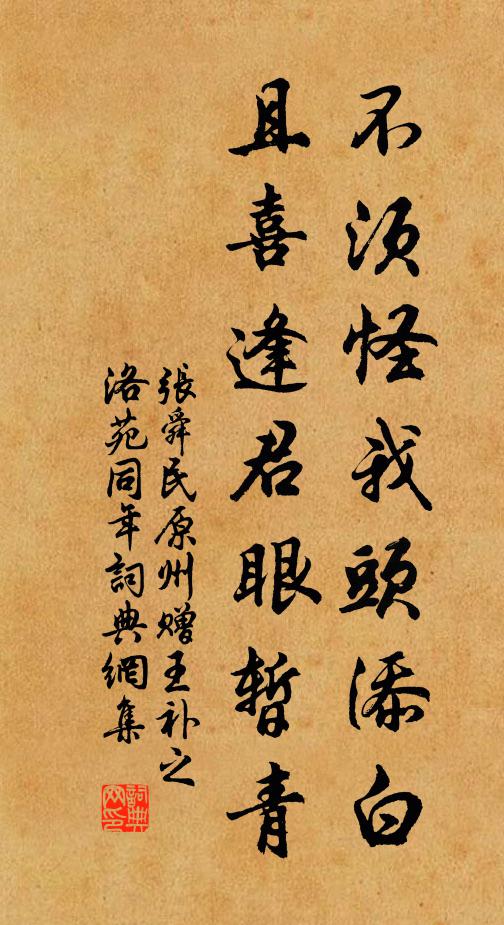 不須怪我頭添白
且喜逢君眼暫青
張舜民原州贈王补之
洛苑同年詞典網集
詞典网印